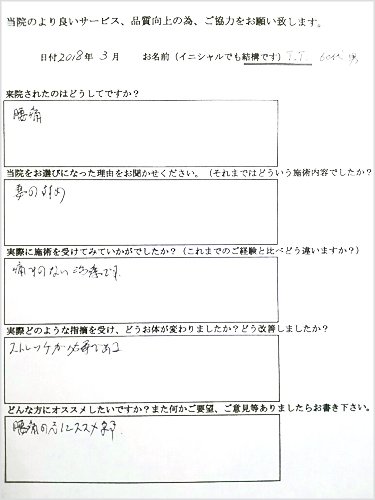 当院のより良いサービス、品質向上の為、ご協力をお願い致します。
日付2018年 3月 お名前（イニシャルでも結構です）T.T 60代 男
来院されたのはどうしてですか？
腰痛
当院をお選びになった理由をお聞かせください。（それまではどういう施術内容でしたか？
妻のすすめ
実際に施術を受けてみていかがでしたか？（これまでのご経験と比べどう違いますか？）
痛すのない治療です
実際どのような指摘を受け、どうお体が変わりましたか？どう改善しましたか？
ストレッチが必要である
どんな方にオススメしたいですか？また何かご要望、ご意見等ありましたらお書き下さい。
腰痛の方にススメます